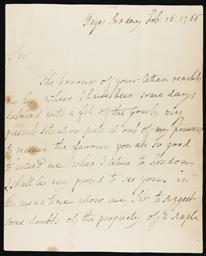 Hayes Sunday Feb. 16. 1766
Sir
The honour of your Letter reach'd
me here where I have been some days
detained with a fit of the Gout. my
present situation puts it out of my power
to receive the favour you are so good
to intend me. when I return to London,
I shall be very proud to see you. in
the mean time allow me, Sir to suggest
some doubts of the propriety of the simple